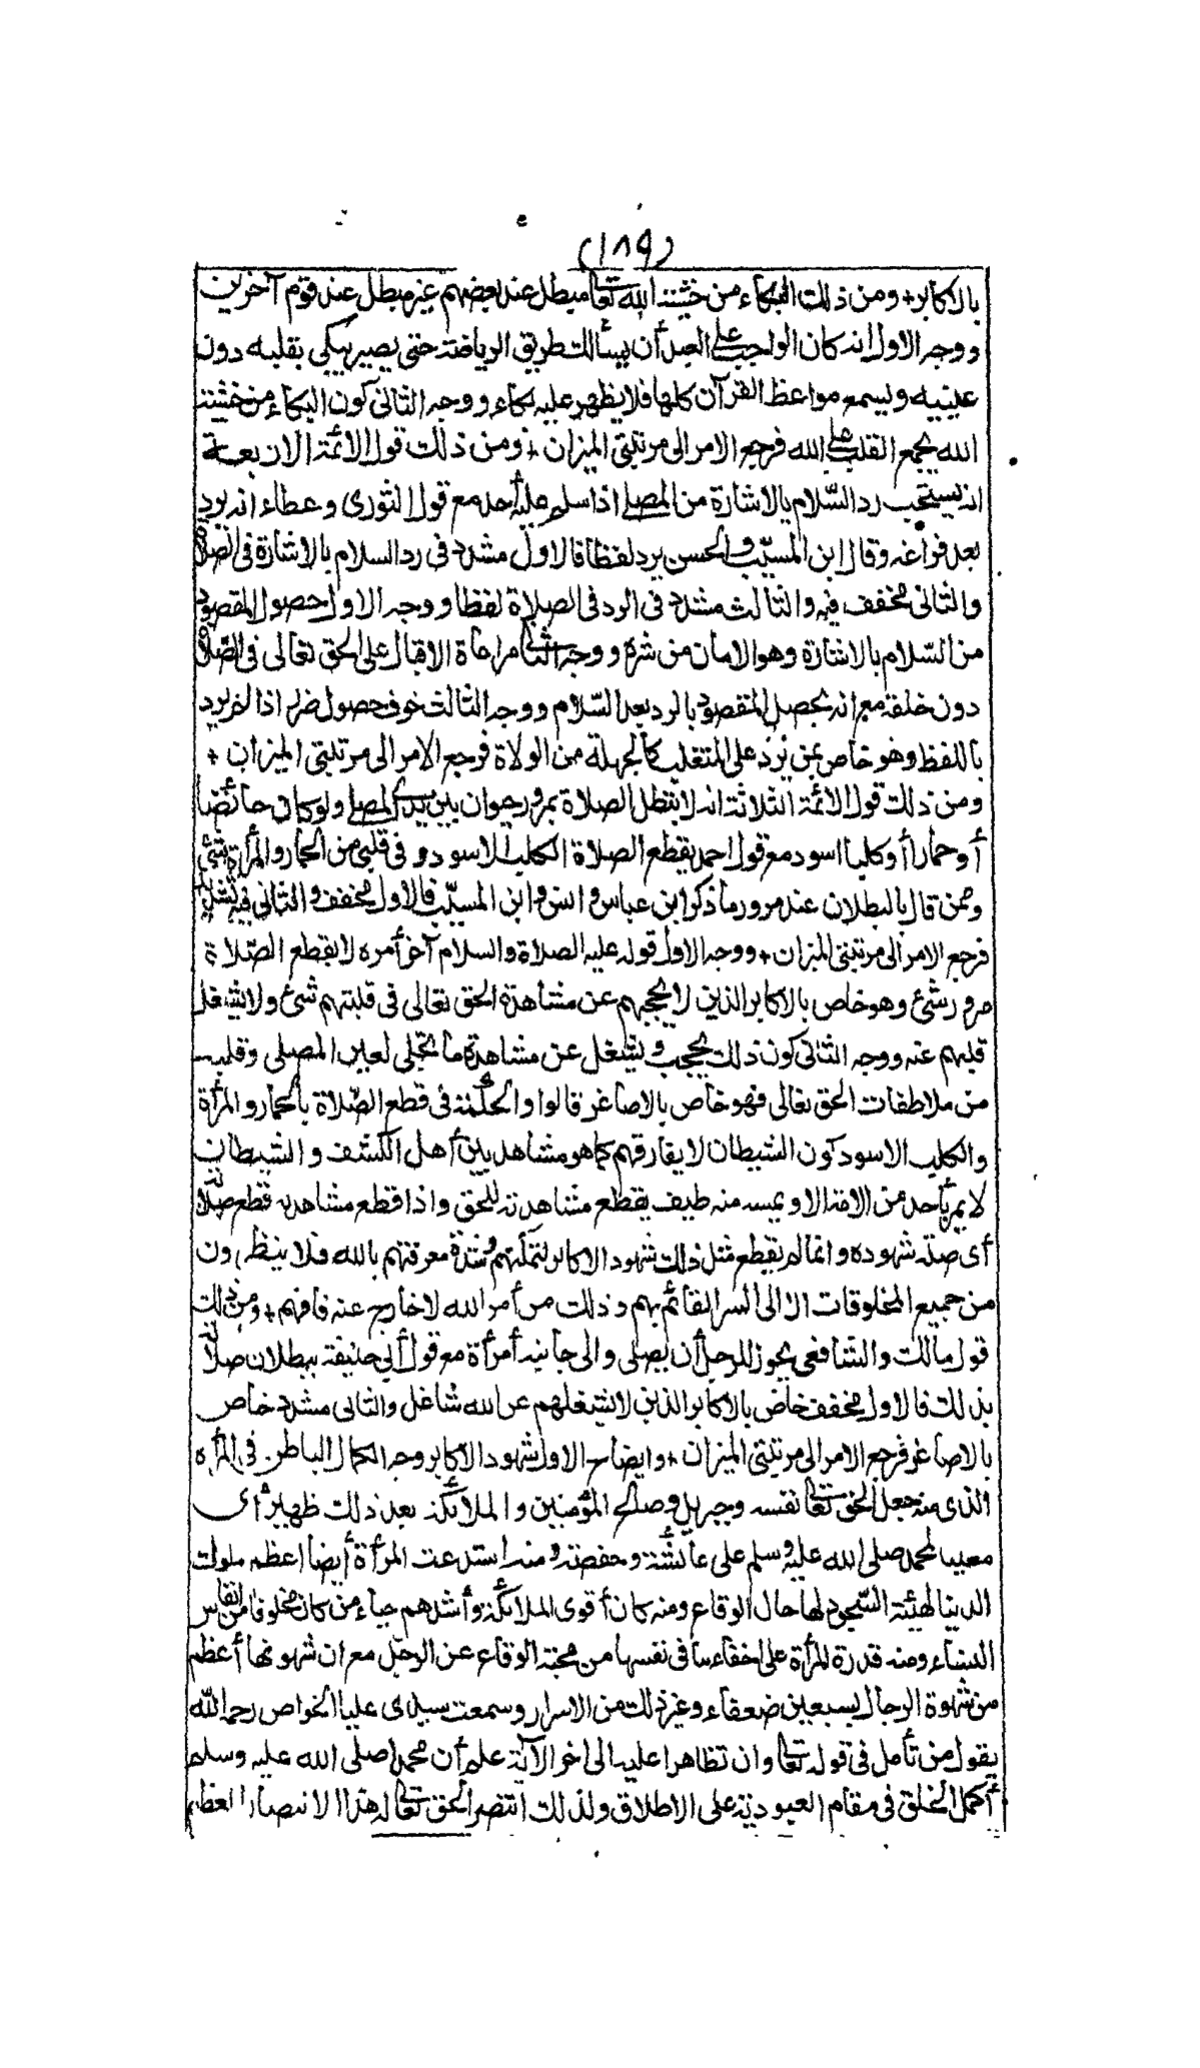 (١٨٩)
بالاكابر+ ومن ذلك البكاء من خشية الله تعالى مبطل عند بعضهم غير مبطل عند قوم آخرين
ووجه الاول انه كان الواجب على العبد أن يسألك طريق الرياضة حتى يصير يبكى بقلبه دون
عينيه ويسمع مواعظ القرآن كلها فلا يظهر عليه بكاء ووجه الثانى كون البكاء من خشية
الله يجمع القلب على الله فرجع الامر الى مرتبتى الميزان + ومن ذلك قول الائمة الاربعة
انه يستحب رد السّلام بالاشارة من المصلى اذا سلم عليه أحد مع قول الثورى وعطاء انه يرد
بعد فراغه وقال ابن المسيّب والحسن يرد لفظا فالاول مشدد فى رد السلام بالاشارة فى الصلاة
والثانى مخفف فيه والثالث مشدد فى الرد فى الصلاة لفظا ووجه الاول حصول المقصود
من السّلام بالاشارة وهو الامان من شره ووجه الثانى مراعاة الاقبال على الحق تعالى فى الصّلاة
دون خلقه مع انه يحصل المقصود بالرد بعد السّلام ووجه الثالث خوف حصول ضرر اذا لم يرد
باللفظ وهو خاص بمن يرد على المتغلب كالجهلة من الولاة فرجع الامر الى مرتبتى الميزان +
ومن ذلك قول الائمة الثلاثة انه لا تبطل الصلاة بمرور حيوان بين يدى المصلى ولو كان حائضا
أو حمارا أو كلبا اسود مع قول احمد يقطع الصلاة الكلب الاسود و فى قلبى من الحمار والمرأة شئ
وممن قال بالبطلان عند مرور ما ذكر ابن عباس وانس وابن المسيّب فالاول مخفف والثانى فيه تشديد
فرجع الامر الى مرتبتى الميزان + ووجه الاول قوله عليه الصلاة والسلام آخر أمره لا يقطع الصّلاة
مرور شئ وهو خاص بالاكابر الذين لا يحجبهم عن مشاهدة الحق تعالى فى قلبتهم شئ ولا يشغل
قلبهم عنه ووجه الثانى كون ذلك يحجب ويشغل عن مشاهدة ما تجلى لعين المصلى وقلبه
من ملاطفات الحق تعالى فهو خاص بالاصاغر قالوا والحكمة فى قطع الصّلاة بالحمار والمرأة
والكلب الاسود كون الشيطان لا يفارقهم كما هو مشاهد بين أهل الكشف والشيطان
لا يمر بأحد من الامة الا ويمسه منه طيف يقطع مشاهدته للحق واذا قطع مشاهدته قطع صلاته
أى صلة شهوده وانما لم يقطع مثل ذلك شهود الاكابر لتمكنهم وشدة معرفتهم بالله فلا ينظرون
من جميع المخلوقات الا الى السر القائم بهم وذلك من أمر الله لا خارج عنه فافهم + ومن ذلك
قول مالك والشافعى يجوز للرجل أن يصلى والى جانبه أمرأة مع قول أبى حنيفة ببطلان صلاته
بذلك فالاول مخفف خاص بالاكابر الذين لا يشغلهم عن الله شاغل والثانى مشدد خاص
بالاصاغر فرجع الامر الى مرتبتى الميزان + وايضاح الاول شهود الاكابر وجه الكمال الباطن فى المرأة
الذى منه جعل الحق تعالى نفسه وجبريل وصالح المؤمنين والملائكة بعد ذلك ظهير أى
معينا لمحمد صلى الله عليه وسلم على عائشة وحفصة ومنه استدعت المرأة أيضا اعظم ملوك
الدنيا لهيئة السّجود لها حال الوقاع ومنه كان أقوى الملائكة وأشدهم حياء من كان مخلوقا من انفاس
النساء ومنه قدرة المرأة على اخفاء ما فى نفسها من محبة الوقاع عن الرجل مع ان شهوتها أعظم
من شهوة الرجال بسبعين ضعفاء وغير ذلك من الاسرار وسمعت سيدى عليا الخواص رحمه الله
يقول من تأمل فى قوله تعالى وان تظاهرا عليه الى اخر الآية علم أن محمدا صلى الله عليه وسلم
أكمل الخلق فى مقام العبودية على الاطلاق ولذلك انتصر الحق تعالى له هذا الانتصار العظيم